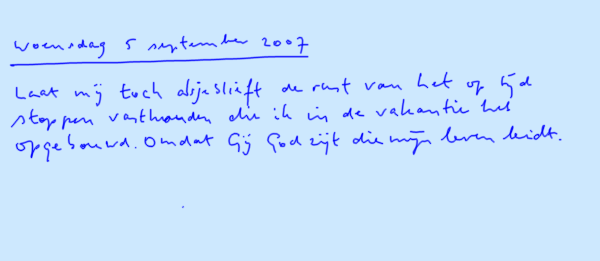 woensdag 5 september 2007
Laat mij toch alsjeblieft de rust van het op tijd
stoppen vasthouden die ik in de vakantie heb
opgebouwd. Omdat Gij God zijt die mijn leven leidt.